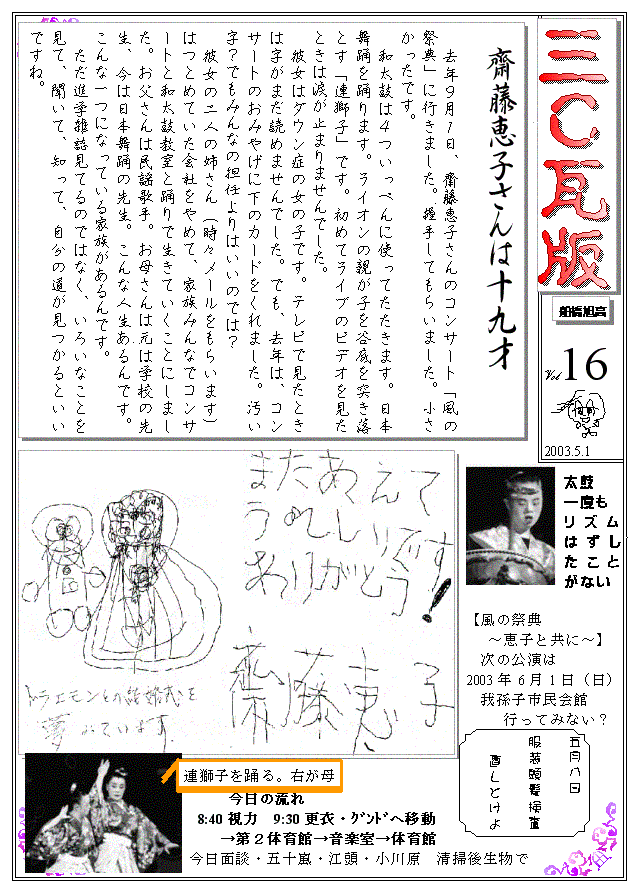 三一〇瓦版
船橋旭高
Vol 16
2003.5.1
齋藤恵子さんは十九才
去年9月1日、齋藤恵子さんのコンサート「風の
祭典」に行きました。握手してもらいました。小さ
かったです。
和太鼓は4ついっぺんに使ってたたきます。日本
舞踊を踊ります。ライオンの親が子を谷底を突き落
とす「連獅子」です。初めてライブのビデオを見た
ときは涙が止まりませんでした。
彼女はダウン症の女の子です。テレビで見たとき
は字がまだ読めませんでした。でも、去年は、コン
サートのおみやげに下のカードをくれました。汚い
字?でもみんなの担任よりはいいのでは?
彼女の二人の姉さん(時々メールをもらいます)
はつとめていた会社をやめて、家族みんなでコンサ
ートと和太鼓教室と踊りで生きていくことにしまし
た。お父さんは民謡歌手。お母さんは元は学校の先
生、今は日本舞踊の先生。こんな人生あるんです。
こんな一つになっている家族があるんです。
ただ進学雑誌見てるのではなく、いろいなことを
見て、聞いて、知って、自分の道が見つかるといい
ですね。
またあえて
うれしいです
ありがとう!
齋藤恵子
ドラエモンとの結婚式を
夢みています
太鼓
一度も
リズム
はずし
たこと
がない
【風の祭典
~恵子と共に~】
次の公演は
2003年6月1日(日)
我孫子市民会館
行ってみない?
五月八日
服装頭髪検査
直しとけよ
連獅子を踊る。右が母
今日の流れ
8:40 視力 9:30 更衣・グランドへ移動
→第2体育館→音楽室→体育館
今日面談・五十嵐・江頭・小川原 清掃後生物で